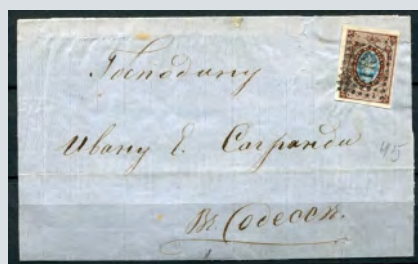 Господину
Ивану Е. Сагранди
45
Въ Одессѣ.